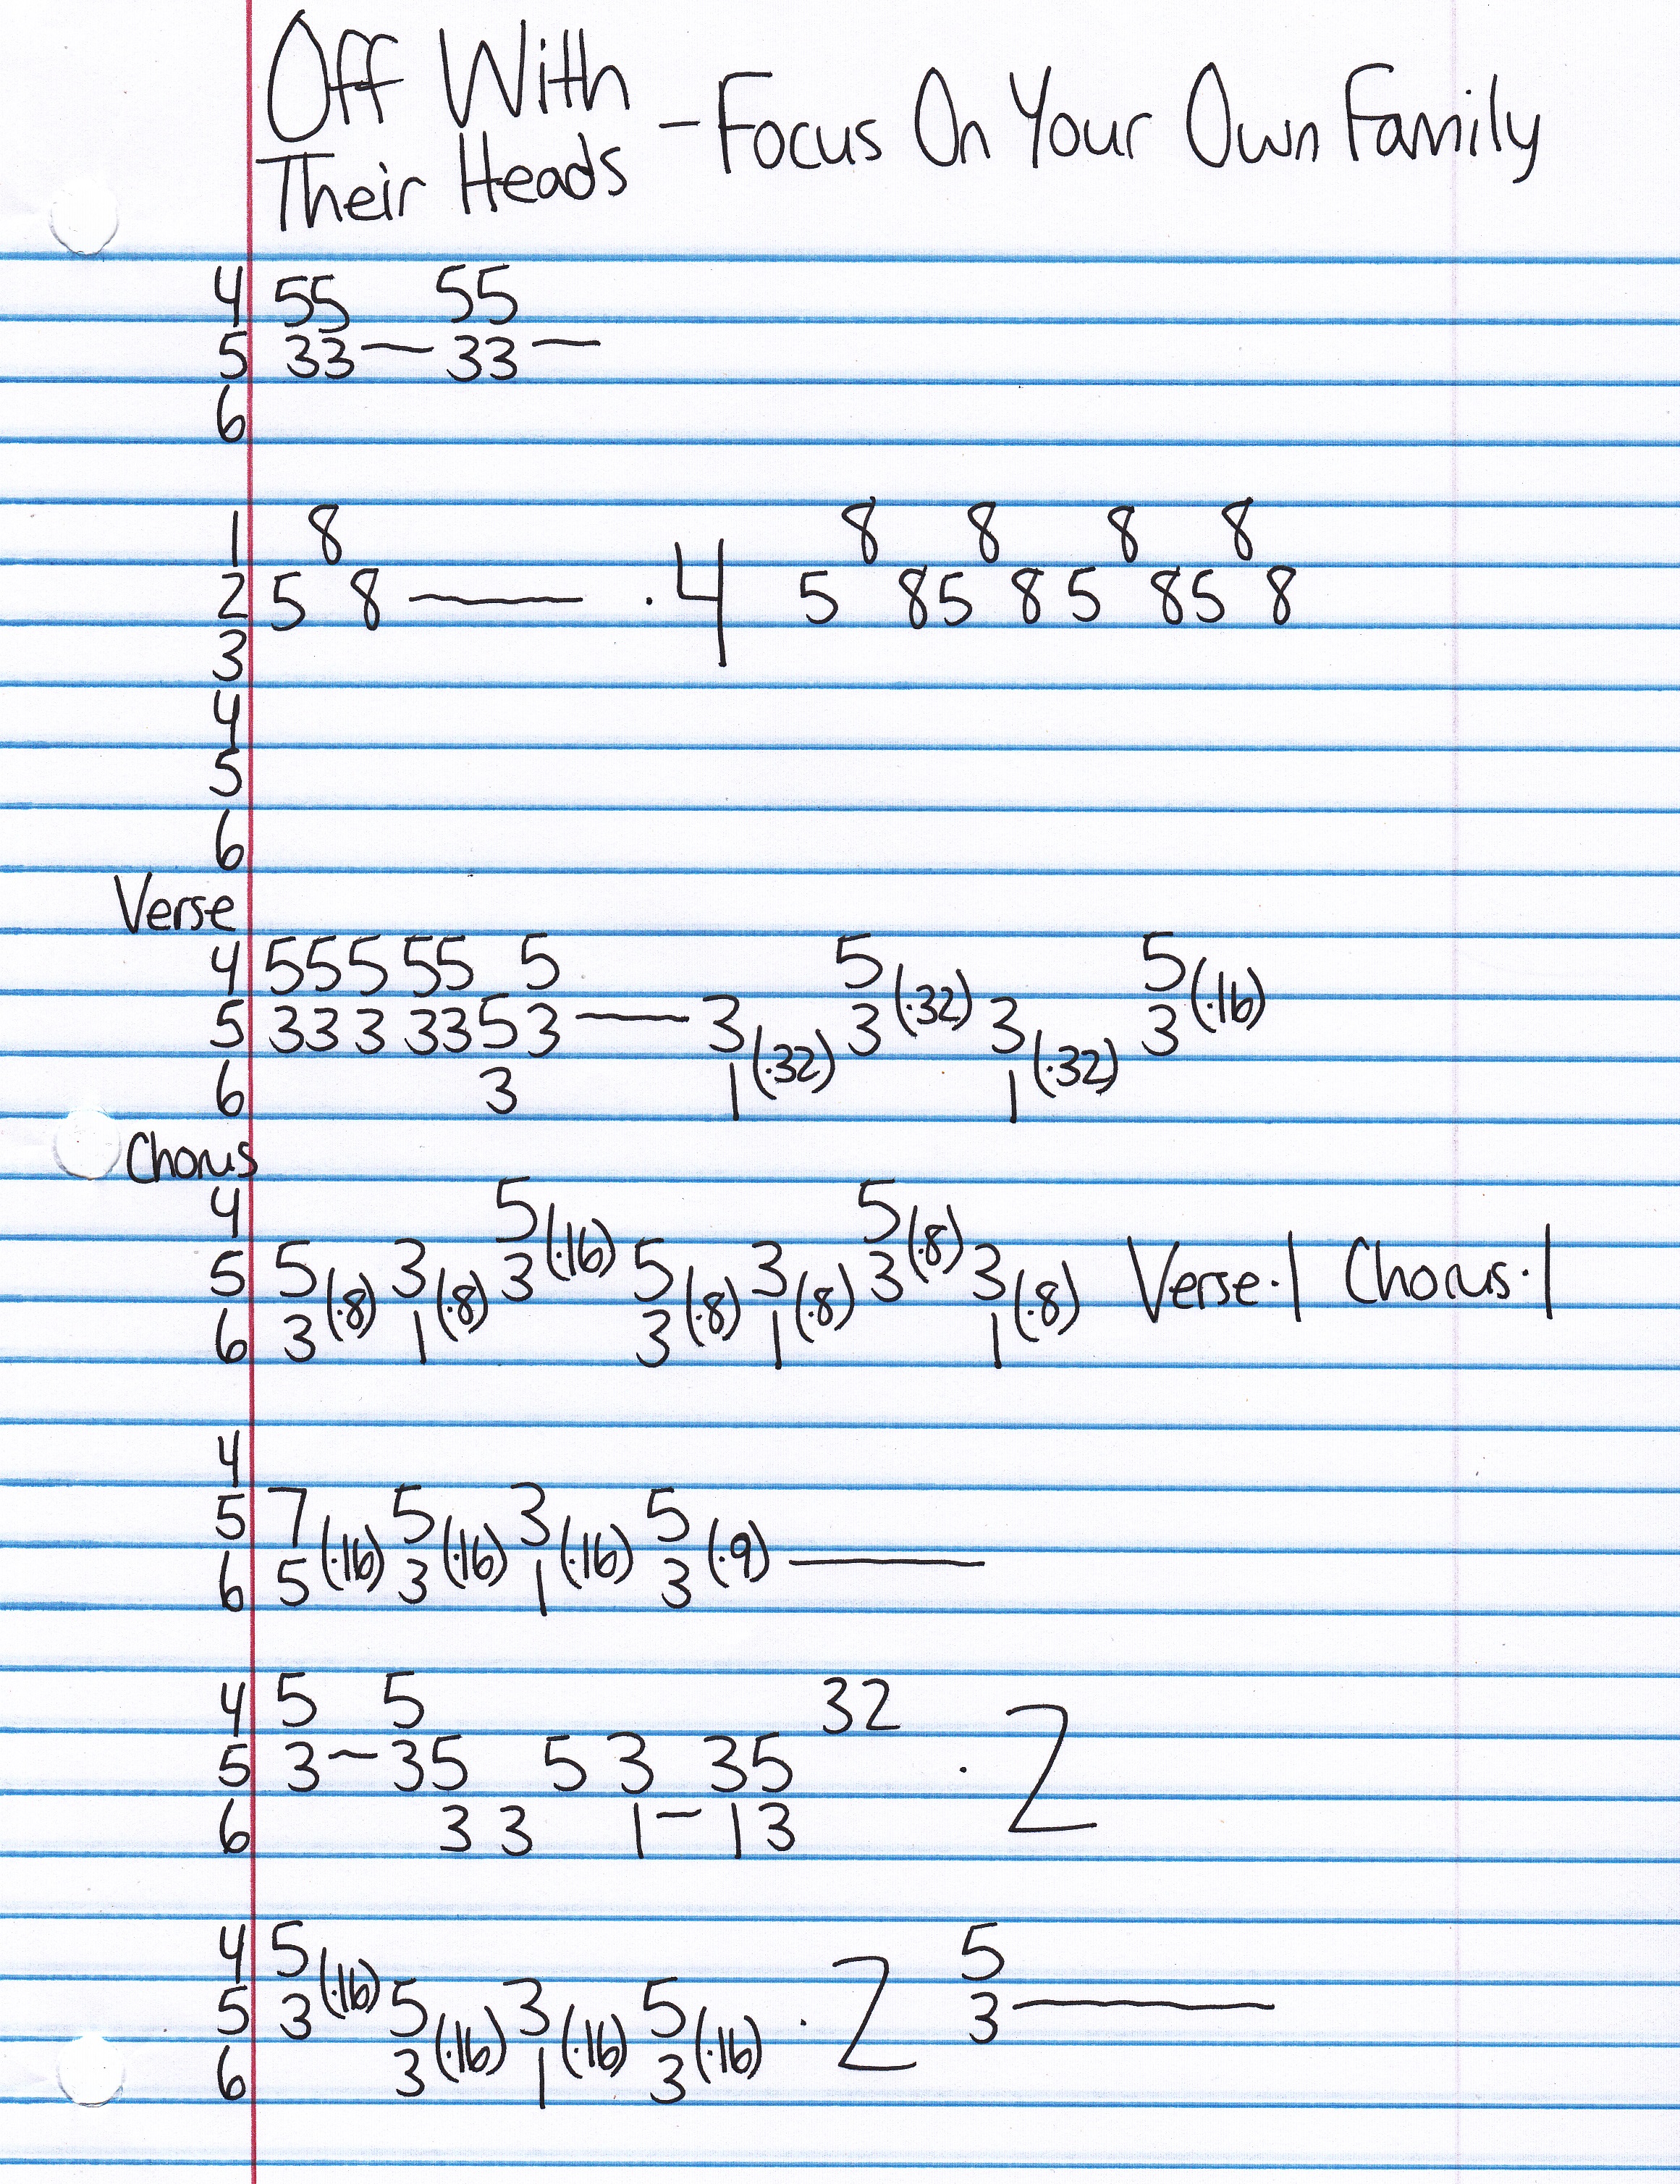 Off With
Their Heads - Focus On Your Own Family
4 55 55
5 33 — 33 —
6
1 8 8 8 8 8
2 5 8 —— ·4 5 85 8 5 85 8
3
4
5
6
Verse
4 555 55 5 5 5
5 33 3 3353 —— 3 3 (·32) 3 3 (·16)
6 3 1 (·32) 1 (·32)
Chorus
4 5 5
5 5 3 3 (·16) 5 3 3 (·8) 3 Verse·1 Chorus·1
6 3 (·8) 1 (·8) 3 (·8) 1 (·8) 1 (·8)
4
5 7 5 3 5
6 5 (·16) 3 (·16) 1 (·16) 3 (·9) ——
4 5 5 32
5 3 — 35 5 3 35 ·2
6 3 3 1 — 1 3
4 5 5
5 3 (·16) 5 3 5 ·2 3 ——
6 3 (·16) 1 (·16) 3 (·16)